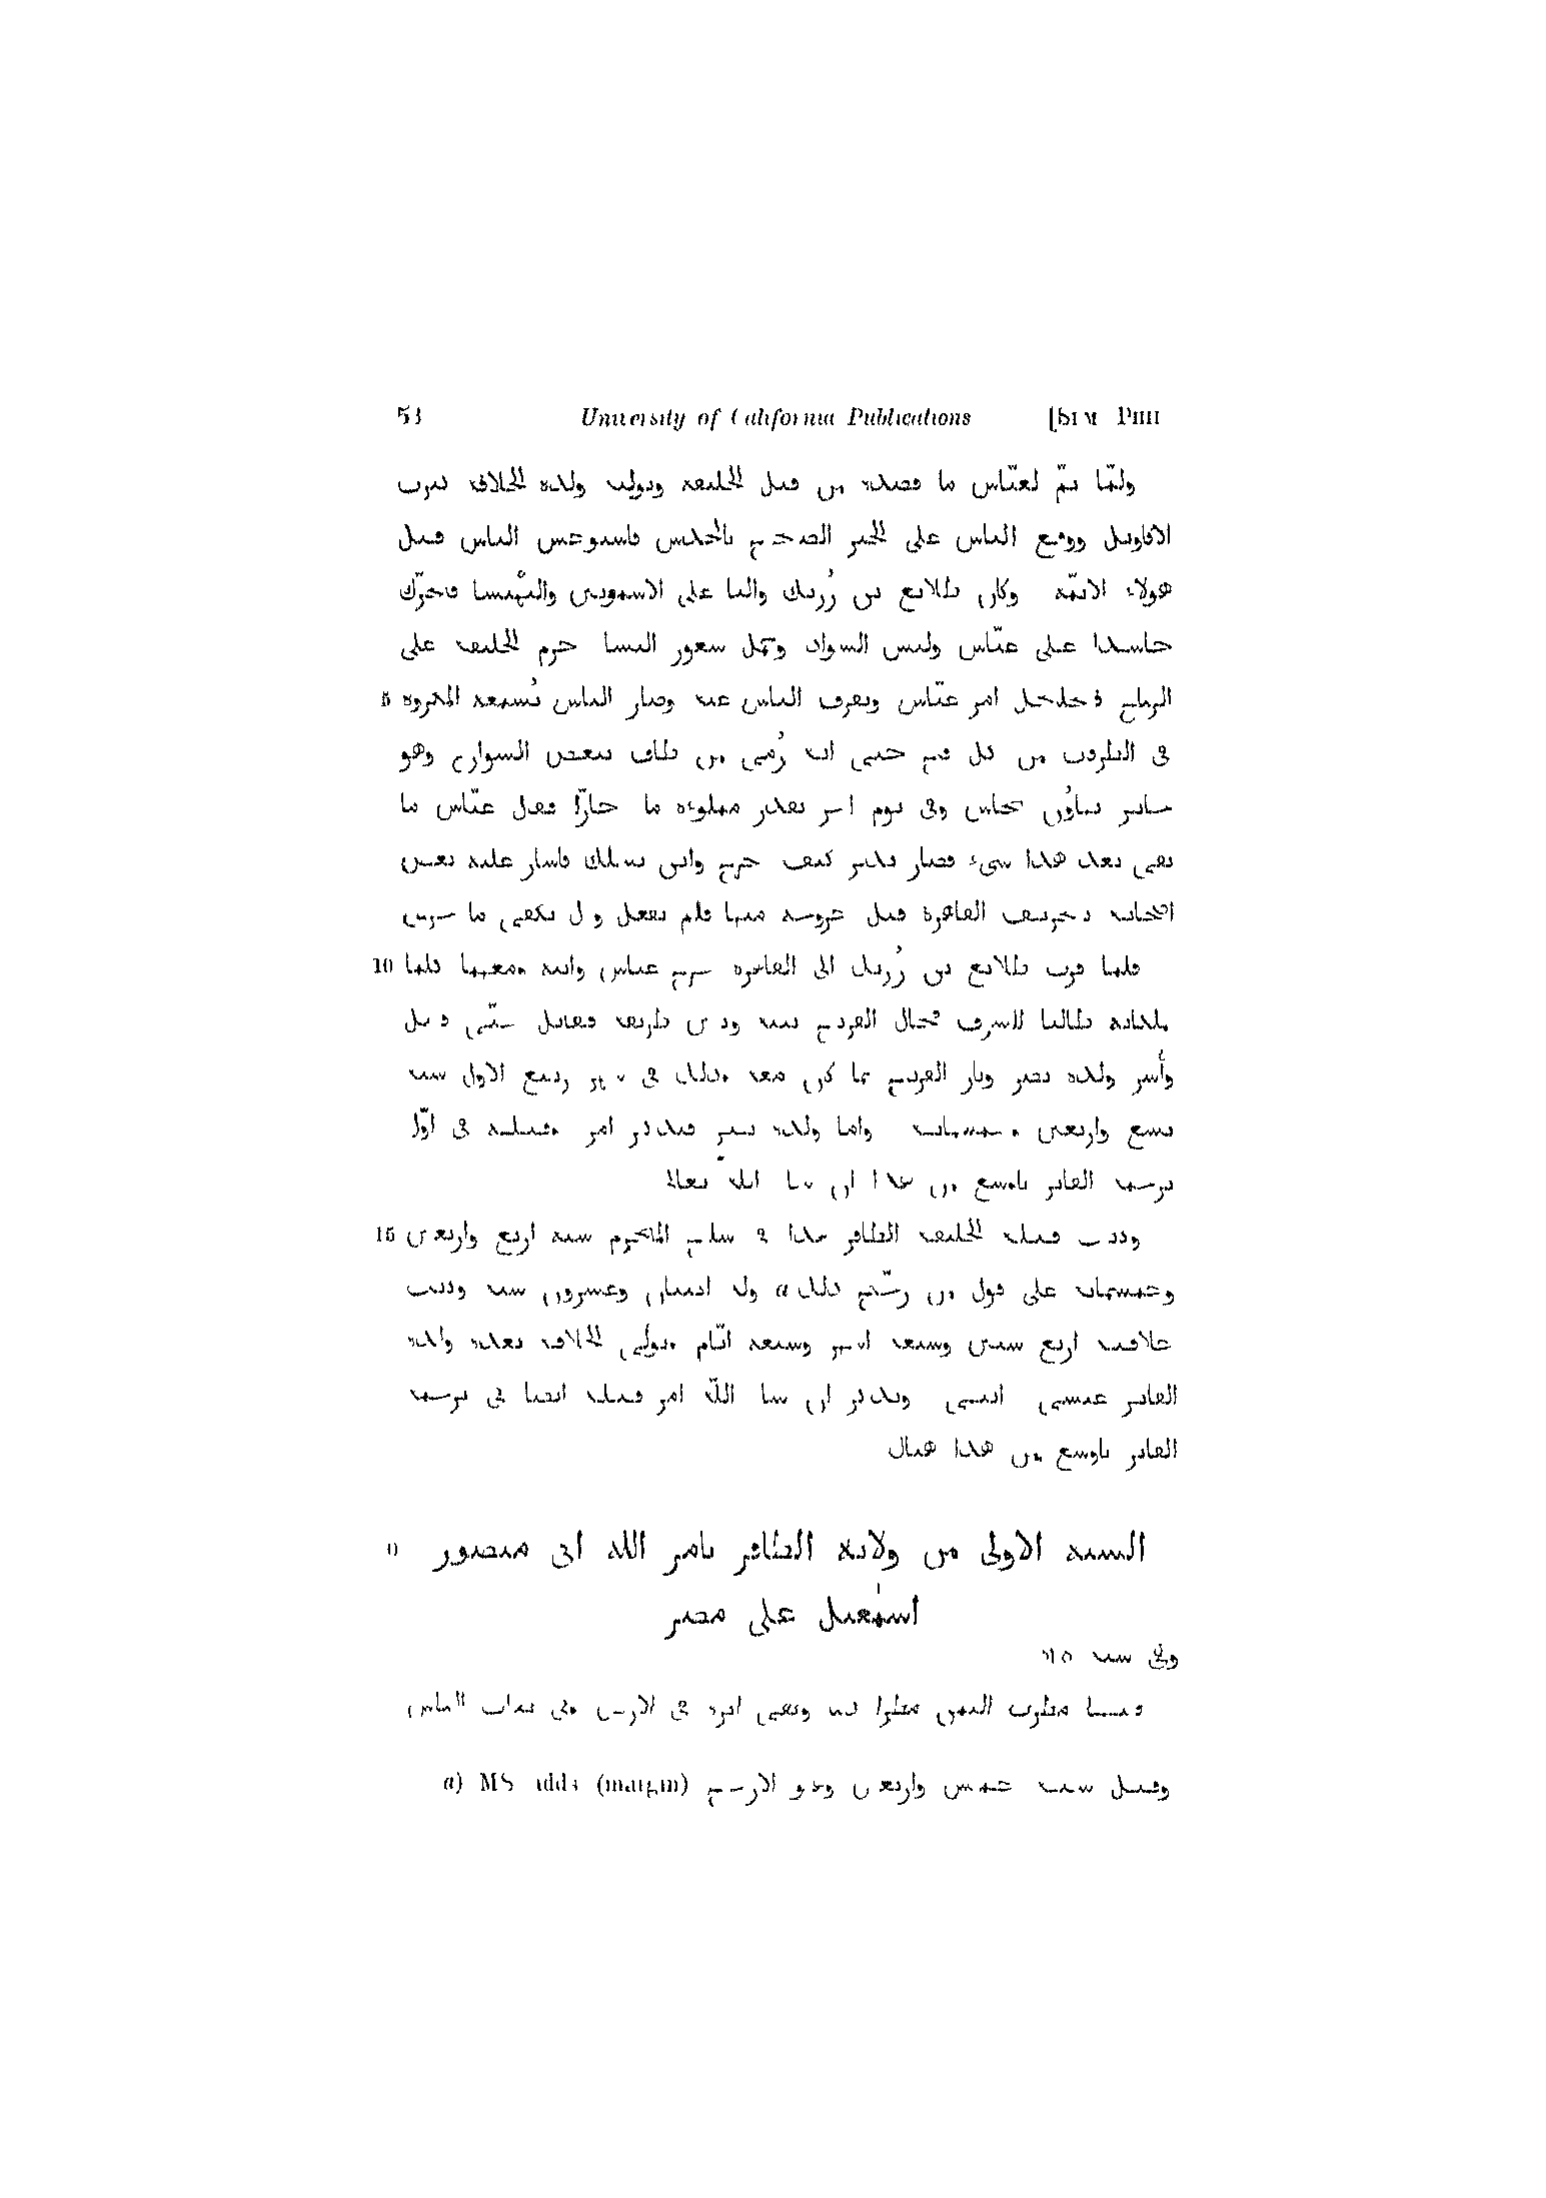 University of California Publications [Sem Phil
ولمّا تمّ لعبّاس ما قصده من قتل الخليفة وتولية ولده الخلافة كثرت
الاقاويل ووقع الناس على الخبر الصحيح بالحدس فاستوحش الناس قتل
هولاء الائمّة وكان طلائع بن رُزيك واليا على الاشمونين والبهنسا فتحرّك
حاشدا على عبّاس ولبس السواد وحمل شعور النسا حرم الخليفة على
5 الرماح فتخلخل امر عبّاس وتفرق الناس عنه وصار الناس تُسمعه المكروه
فى الطرقات من كل فج حتى انه رُمى من طاق ببعض الشوارع وهو
جائز بهاوُن نحاس وفى يوم اخر بقدر مملوءة ما حارّا فقال عبّاس ما
بقى بعد هذا شىء فصار يدبر كيف يخرج واين يسلك فاشار عليه بعض
اصحابه بتحريق القاهرة قبل خروجه منها فلم يفعل وقال يكفى ما جرى
10 فلما قرب طلائع بن رُزيك الى القاهرة خرج عباس وابنه ومعهما كلما
يملكانه طالبا للشرق فحال الفرنج بينه وبين طريقه فقاتل حتّى قتل
وأُسر ولده نصر وفاز الفرنج بما كان معه وذلك فى شهر ربيع الاول سنة
تسع واربعين وخمسمائة واما ولده نصر فنذكر امره وقتله فى اوّل
ترجمة الفائز باوسع من هذا ان شا الله تعالى
15 وكانت قتلة الخليفة الظافر هذا فى سلخ المحرم سنة تسع واربعين
وخمسمائة على قول من رجّح ذلك a وله اثنتان وعشرون سنة وكانت
خلافته اربع سنين وسبعة اشهر وسبعة ايّام وتولّى الخلافة بعده ولده
الفائز عيسى انتهى ونذكر ان شا اللّه امر قتله ايضا فى ترجمة
الفائز باوسع من هذا هناك
السنة الاولى من ولاية الظافر بامر الله ابى منصور
اسمٰعيل على مصر
وهى سنة
فيها مطرت اليمن مطرا دما وبقى اثره فى الارض وفى ثياب الناس
a) MS adds (margin) وقيل سنة خمس واربعين وهو الارجح